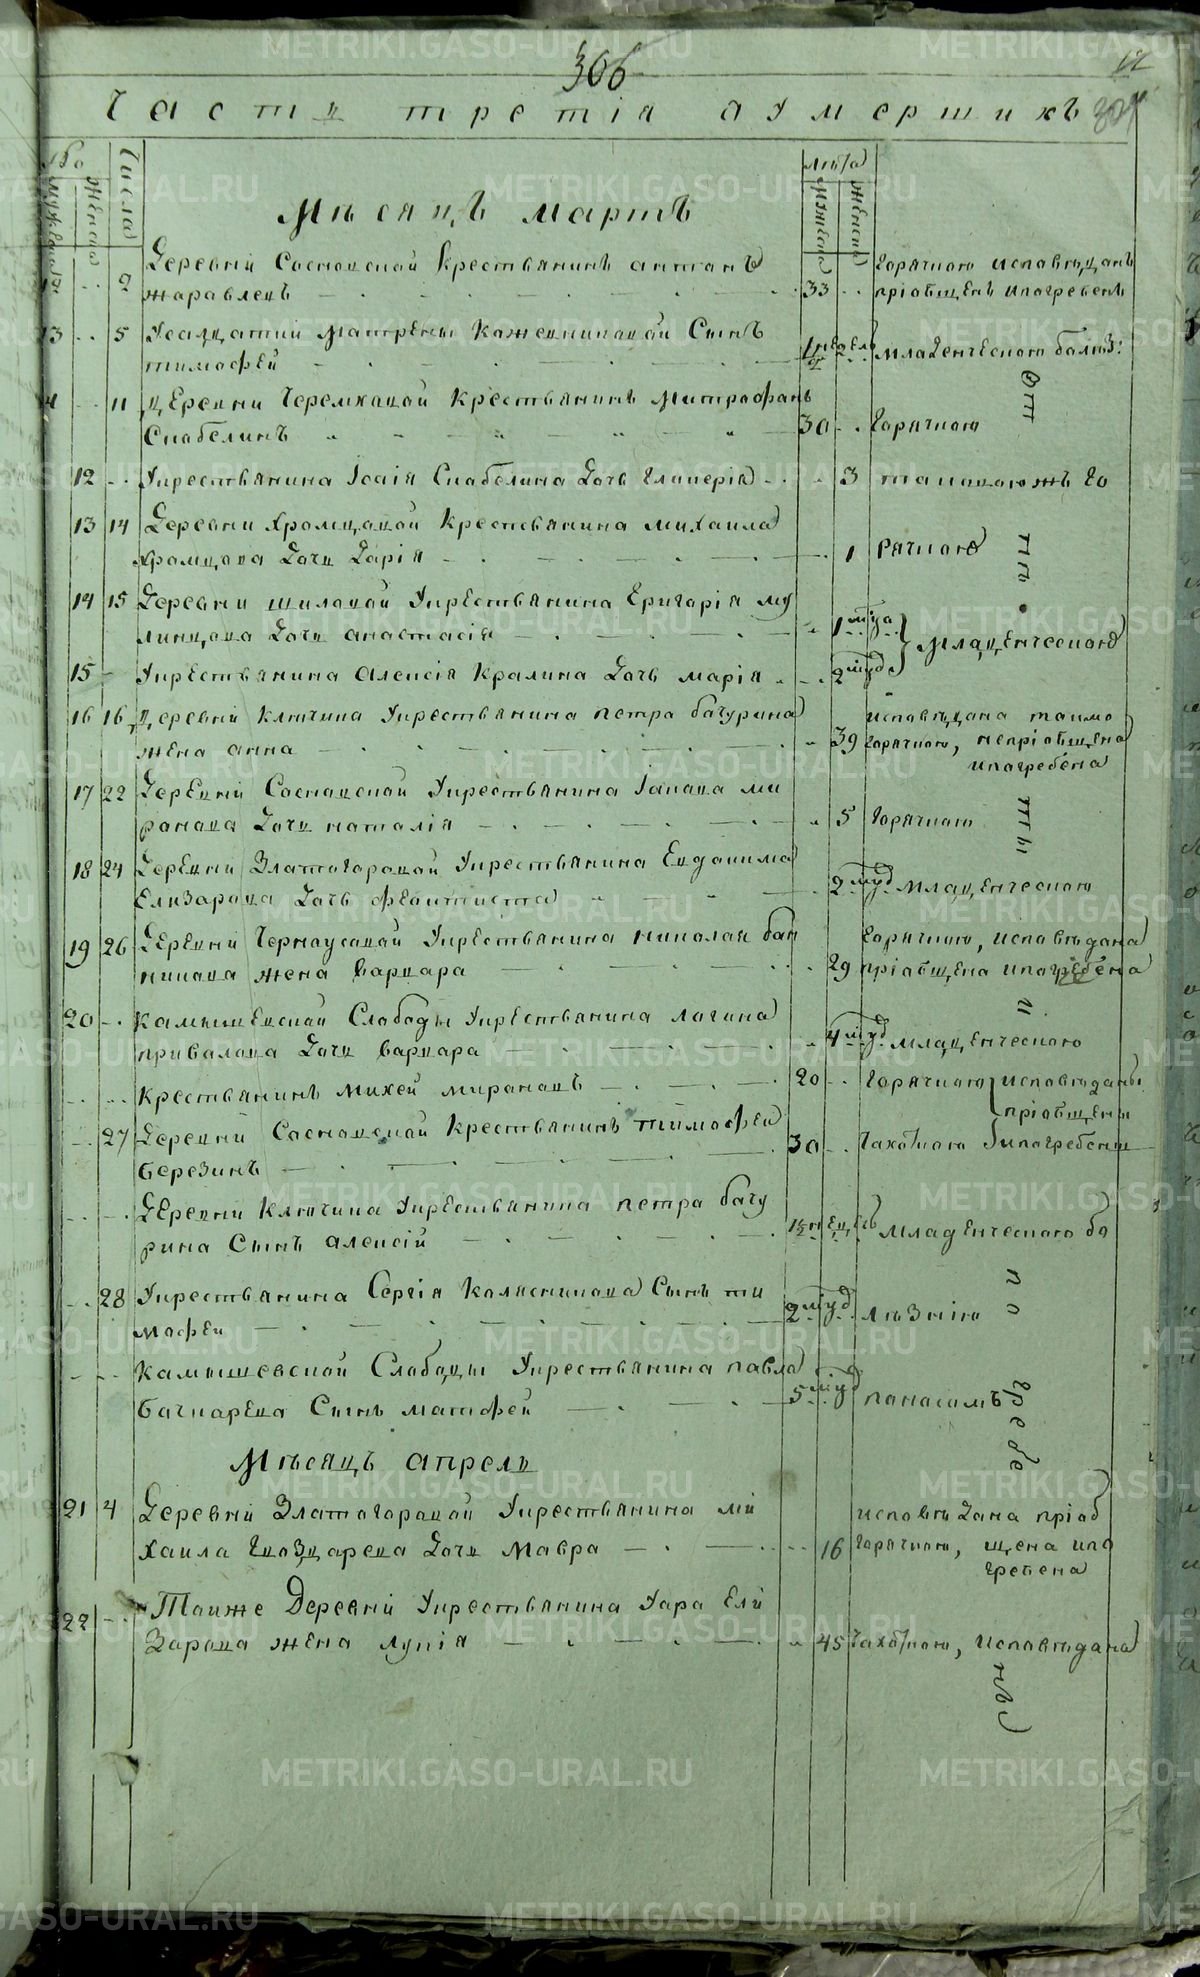 306
Часть третія аумершихъ
Числа
лѣта
Мѣсяцъ мартъ
Деревни Сосновской Крестьянинъ антонъ
жаравлевъ
33
горячкою исповѣданъ
пріабщенъ ипогребенъ
13 5 Усалдатки Матрены Кажевниковой Сынъ
тимофей
младенческою
11 деревни Черемховой Крестьянинъ Митрофанъ
Скабелинъ
30 горячкою
12 Укрестьянина Ісаія Скабелина дочь гликерія
3 такоюжъ го
13 14 деревни Хромцовой Крестьянина михаила
Хромцова дочь дарія
1 рячкою
14 15 деревни шиловой Укрестьянина Григорія му
линцова дочь анастасія
1
младенческою
15 Укрестьянина алексія Кралина дочь марія
2
16 16 деревни ключина Укрестьянина петра бачурина
жена анна
39
исповѣдана такмо
горячкою, непріабщена
ипогребена
17 22 деревни Сосновской Укрестьянина Іакова ми
ронова дочь наталія
5 горячкою
18 24 деревни Златогоровой Укрестьянина Евдокима
Елизарова дочь феоктиста
2 младенческою
19 26 деревни Черноусовой Укрестьянина николая бан
никова жена варвара
29
горячкою, исповѣдана
пріабщена ипогребена
20 камышевской Слободы Укрестьянина логина
привалова дочь варвара
4 младенческою
Крестьянинъ михей мироновъ
20 горячкою исповѣданы
пріабщены
27 деревни Сосновской Крестьянинъ тимофей
березинъ
30 чахоткою ипогребены
деревни Ключина Укрестьянина петра бачу
рина Сынъ алексій
младенческою бо
28 Укрестьянина Сергія Колясникова Сынъ ти
мофей
2 лѣзнію
камышевской Слободы Укрестьянина павла
бачкарева Сынъ матфей
5 поносомъ
Мѣсяцъ апрель
21 4 деревни Златогоровой Укрестьянина ми
хаила Гвоздарева дочь Мавра
16
исповѣдана пріоб
горячкою, щена ипо
гребена
22 Тоиже деревни Укрестьянина Уара Ели
зарова жена лукія
45 чахоткою, исповѣдана
METRIKI.GASO-URAL.RU